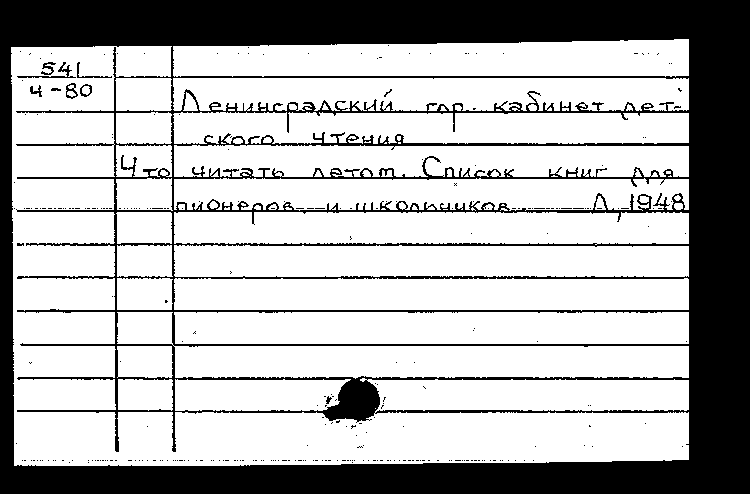 541
Ч-80
Ленинградский гор. кабинет дет-
ского чтения
Что читать летом. Список книг для
пионеров и школьников. Л, 1948